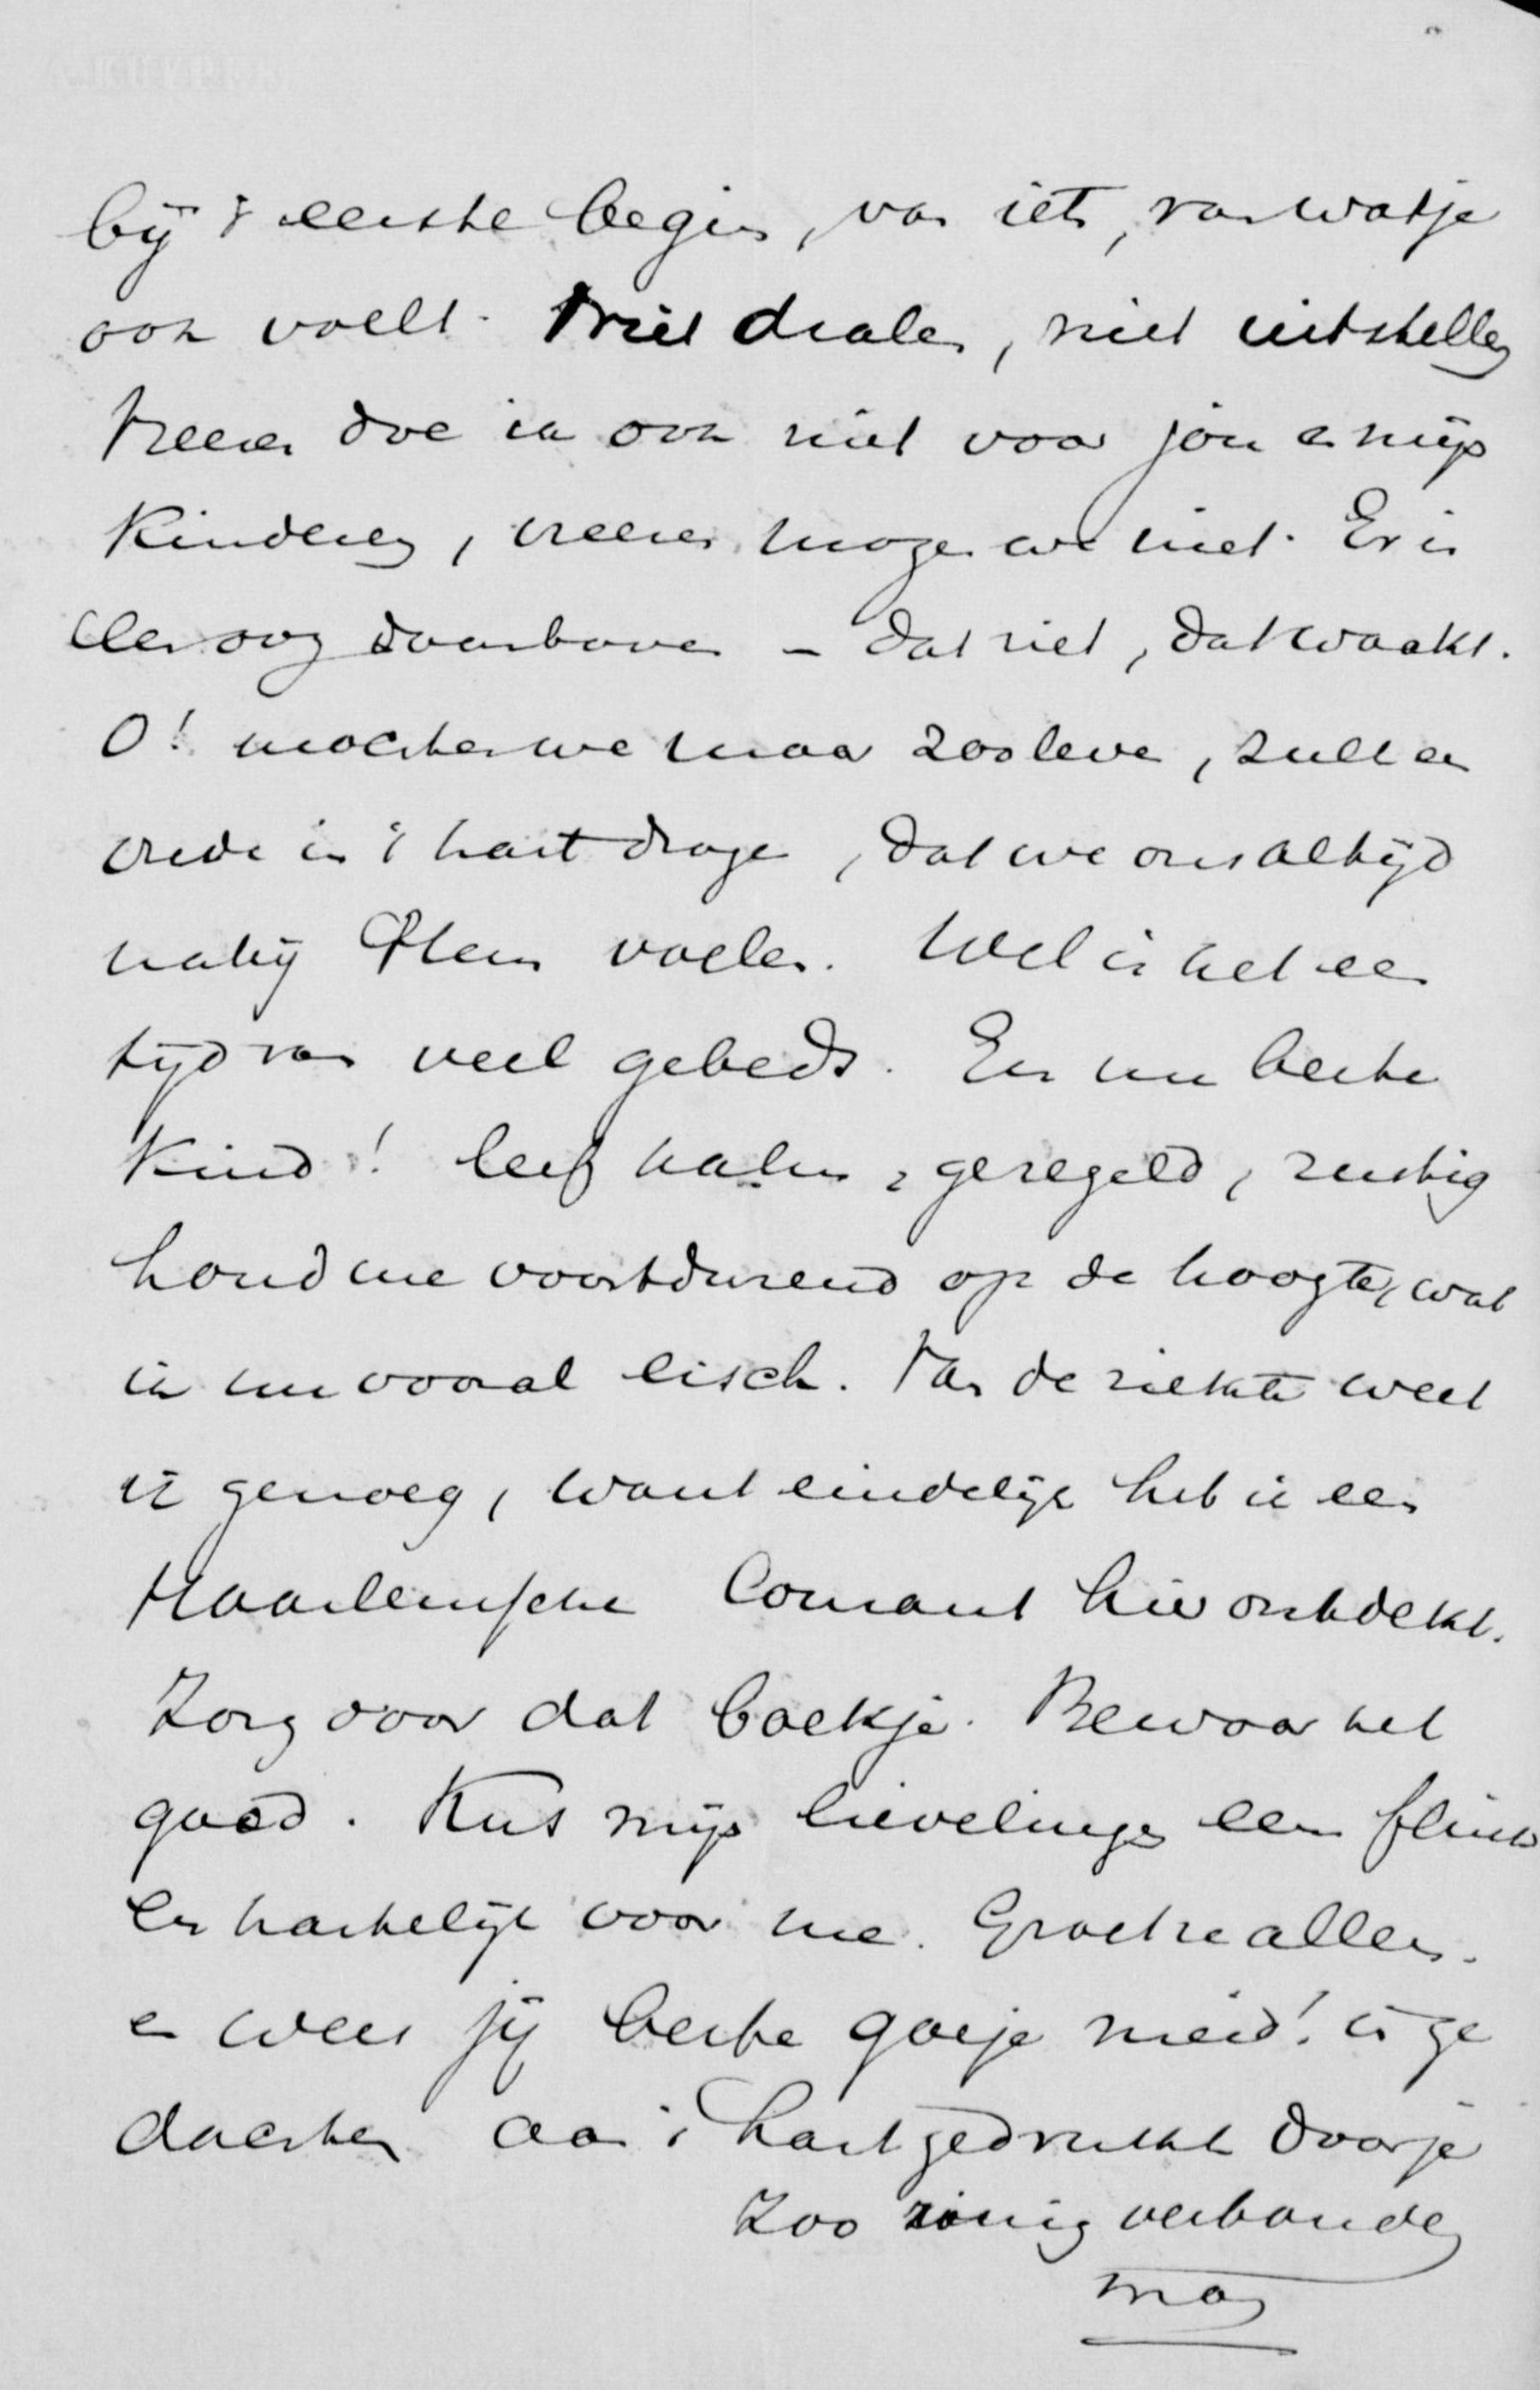 bij 't eerste begin, van iets, van watje
ook voelt. Niet dralen, niet uitstellen
Vreezen doe ik ook niet voor jou en mijn
Kinderen, vreezen mogen we niet. Er is
een oog daarboven – dat ziet, dat waakt.
O! mochten we maar zoo leven, zulk een
vrede in 't hart dragen, dat we ons altijd
nabij Hem voelen. Wel is het een
tijd van veel gebeds. En nu beste
Kind! leef kalm, geregeld, rustig
houd me voortdurend op de hoogte, wat
ik nu vooral eisch. Van de ziekte weet
ik genoeg, want eindelijk heb ik een
Haarlemsche Courant hier ontdekt.
Zorg voor dat boekje. Bewaar het
goed. Kus mijn lievelingen een flink
en hartelijk voor me. Groet ze allen.
en wees jij beste goeje meid! in ge
dachten aan 't hart gedrukt door je
Zoo innig verbonden
man